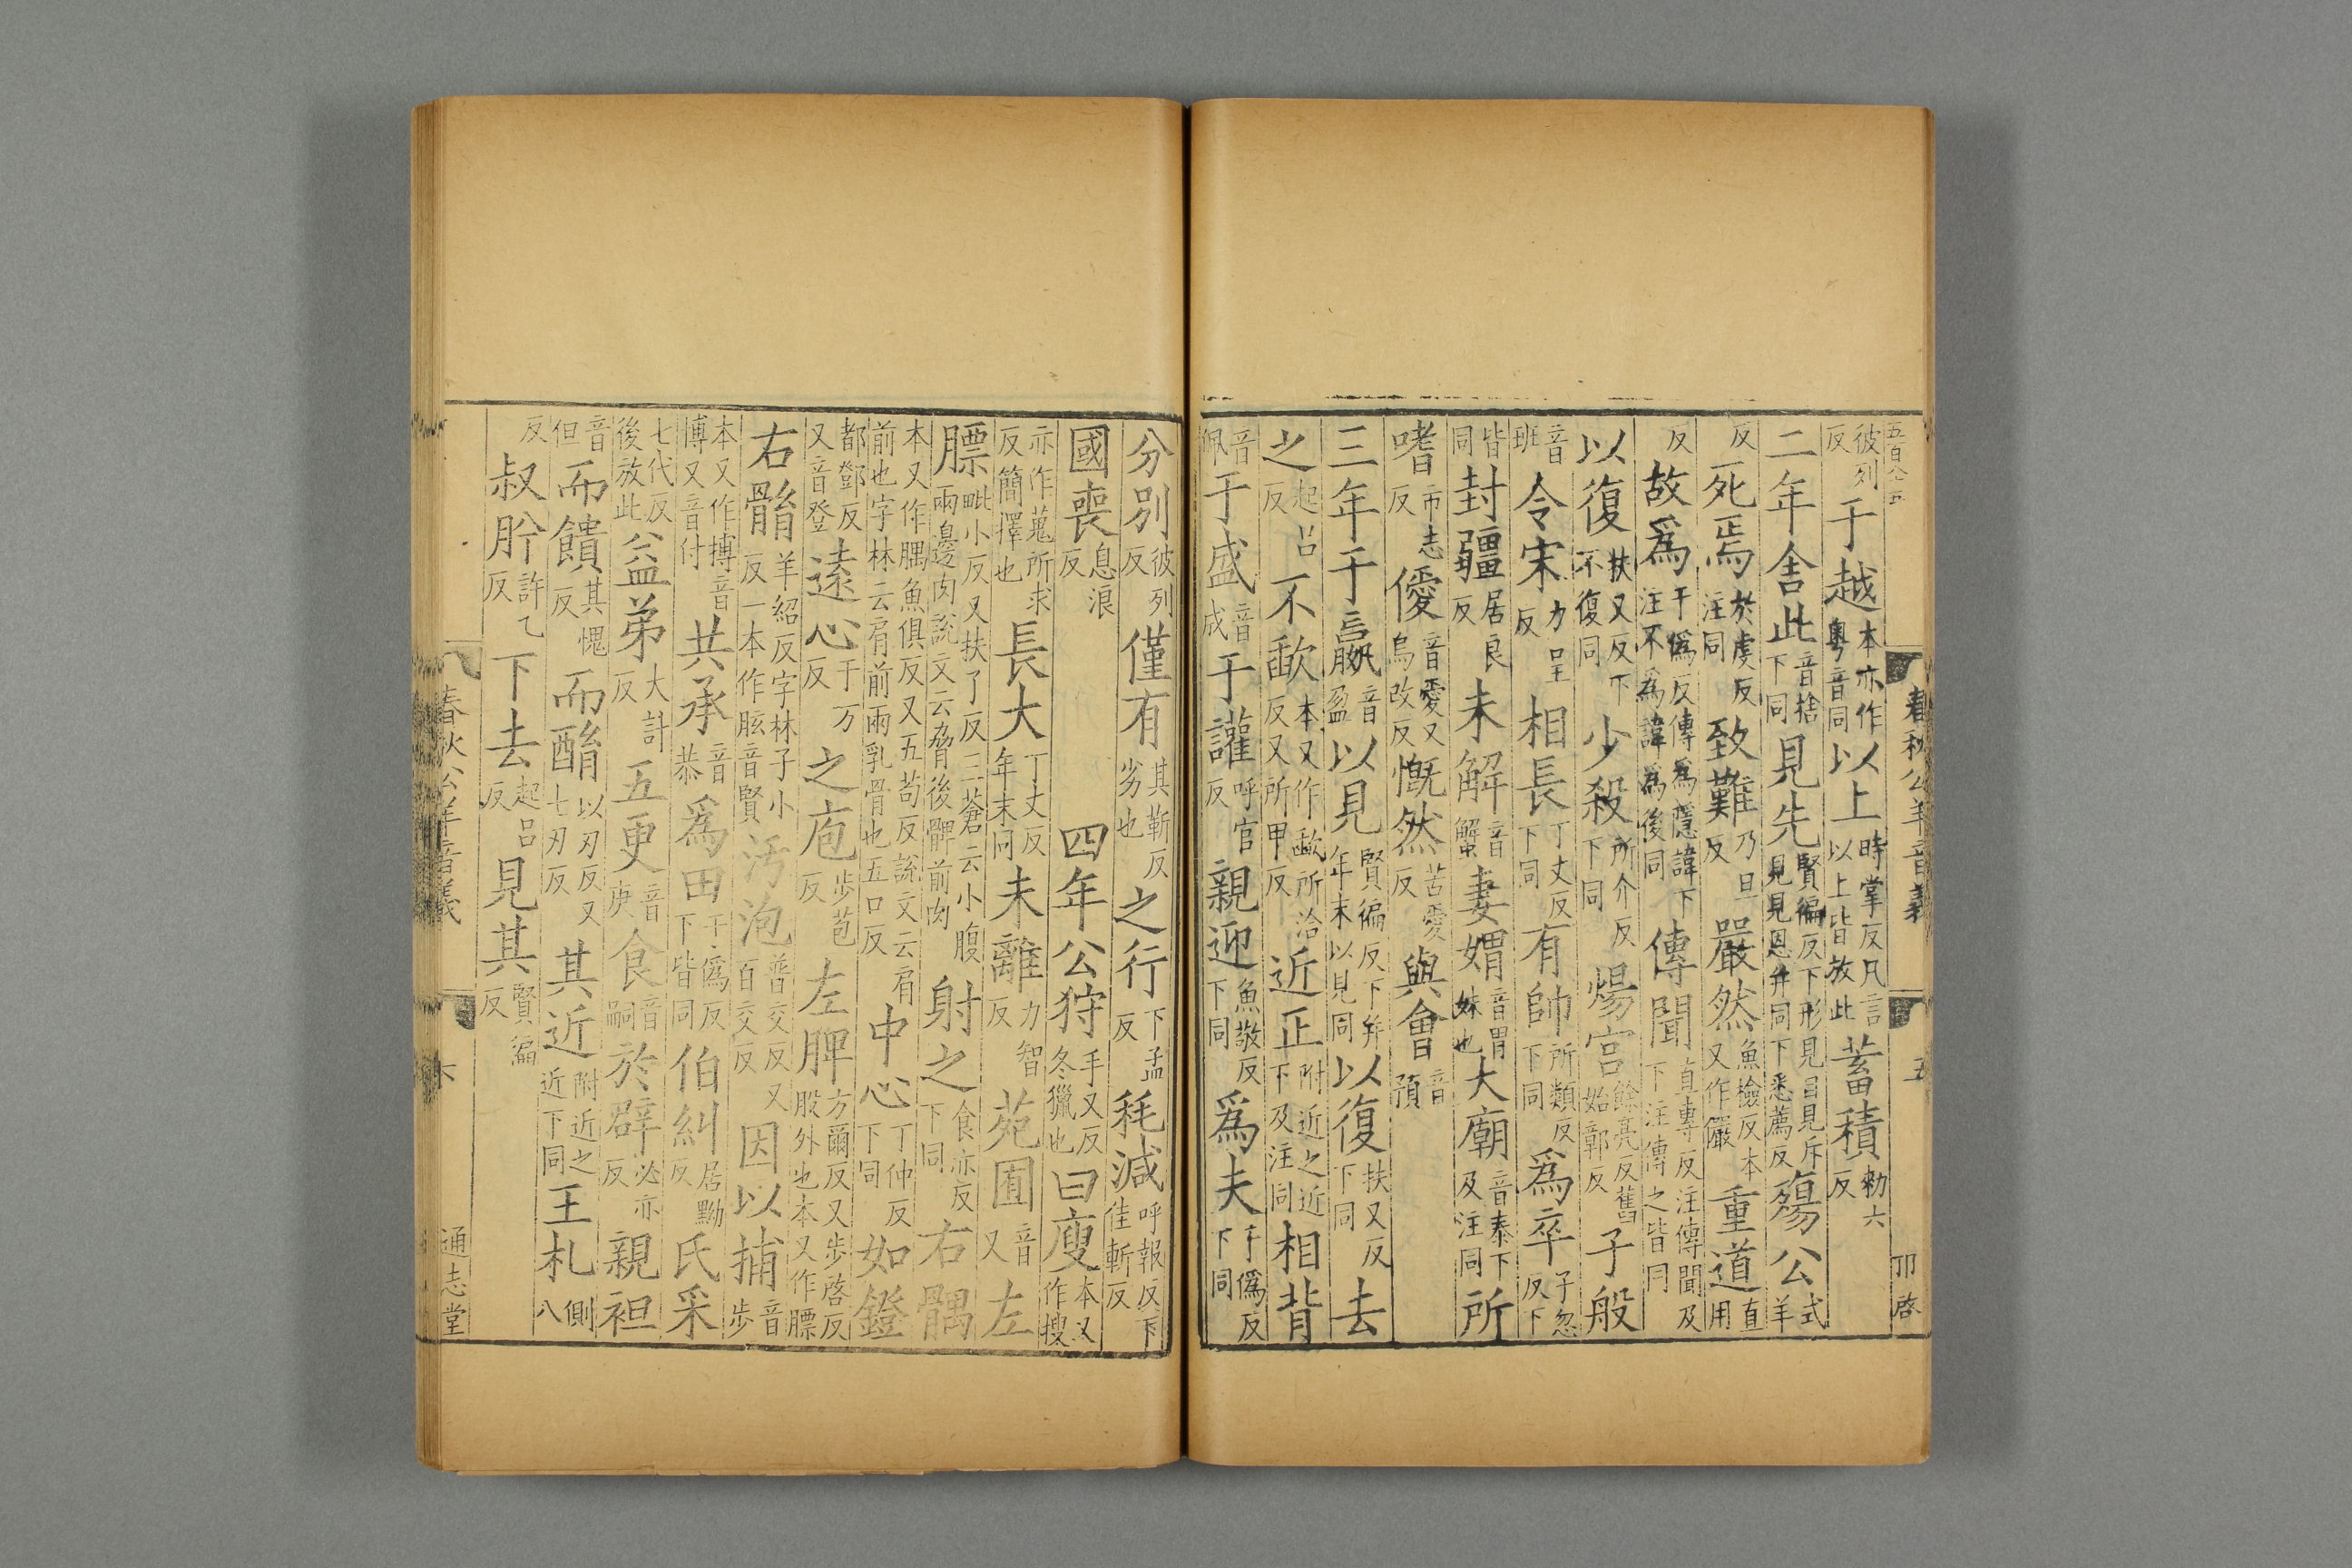 五百八五
春秋公羊音義
五
卬啓
彼列反于越本亦作粵音同以上時掌反凡言以上皆放此蓄積勑六反
二年舍此音捨下同見先賢徧反下形見見恩并同下悉薦反殤公式羊
反死焉於虔反注同致難乃旦反嚴然魚檢反本又作儼重道直用
反故爲于僞反傳爲隱諱下注不爲諱爲後同傳聞直專反注傳聞及下注傳之皆同
以復扶又反下不復同少殺所介反下同煬宮餘亮反舊始鄣反子般
音班令宋力呈反相長丁丈反下同有帥所類反下同爲卒子忽反下
皆同封疆居良反未解音蟹妻媦音胃妹也大廟音泰下及注同所
嗜市志反優音愛又烏改反慨然苦愛反與會音預
三年于嬴音盈以見賢徧反下并年末以見同以復扶又反下同去
之起呂反不歃本又作㰱所洽反又所甲反近正附近之近下及注同相背
音佩于盛音成于讙呼官反親迎魚敬反下同爲夫于僞反下同
分別彼列反僅有其靳反劣也之行下孟反秏減呼報反下佳斬反
國喪息浪反四年公狩手又反冬獵也曰廋本又作搜
亦作蒐所求反簡擇也長大丁丈反年末同未離力智反苑囿音又左
膘毗小反又扶了反三蒼云小腹兩邊肉說文云脅後髀前肉射之食亦反下同右髃
本又作腢魚俱反又五苟反說文云肩前也字林云肩前兩乳骨也五口反中心丁仲反下同如鐙
都鄧反又音登遠心于万反之庖步苞反左脾方爾反又步啓反股外也本又作膘
右䯚羊紹反字林子小反一本作胘音賢汚泡普交反又百交反因以捕音步
本又作搏音博又音付共承音恭爲田于僞反下皆同伯糾居黝反氏采
七代反後放此公益弟大計反五更音庚食音嗣於辟必亦反親袒
音但而饋其愧反而酳以刃反又七刃反其近附近之近下同王札側八
反叔肸許乙反下去起呂反見其賢徧反
春秋公羊音義
六
通志堂